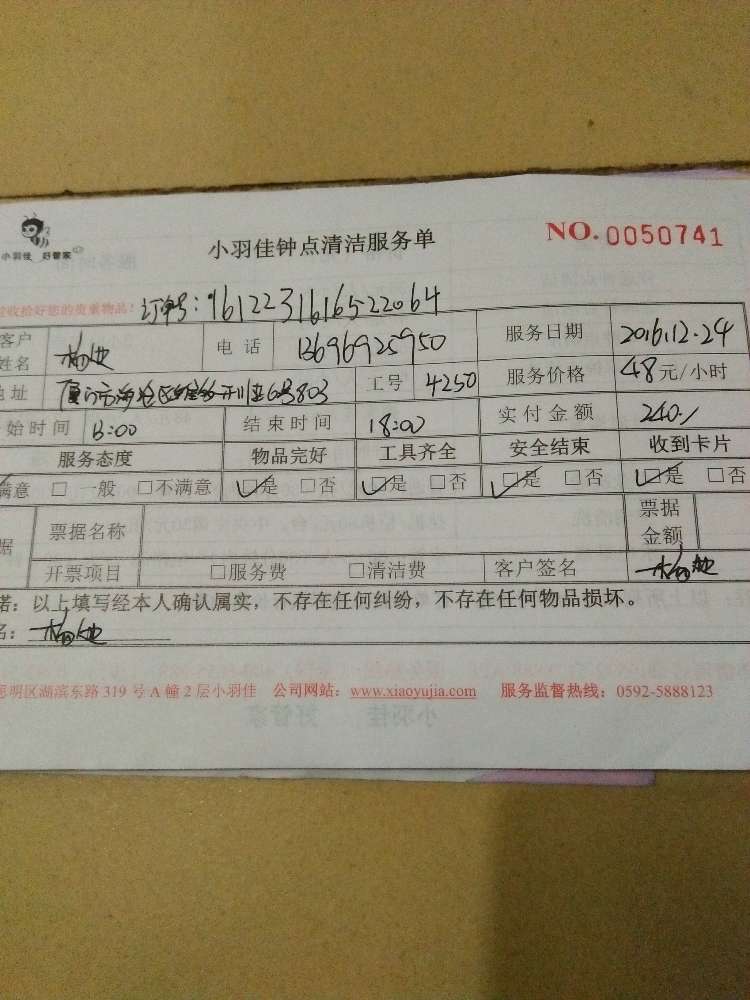 小羽佳 好管家
小羽佳钟点清洁服务单 NO. 0050741
收拾好您的贵重物品! 订单号: 9612231616522064
客户姓名 电话 13696925950 服务日期 2016.12.24
地址 厦门市海沧区 6号803 工号 4250 服务价格 48元/小时
始时间 13:00 结束时间 18:00 实付金额 240./
服务态度 物品完好 工具齐全 安全结束 收到卡片
满意 □ 一般 □不满意 ☑是 □否 ☑是 □否 ☑是 □否 ☑是 □否
据 票据名称 票据金额
开票项目 □服务费 □清洁费 客户签名
诺：以上填写经本人确认属实，不存在任何纠纷，不存在任何物品损坏。
名：
思明区湖滨东路 319 号 A 幢 2 层小羽佳 公司网站：www.xiaoyujia.com 服务监督热线：0592-5888123